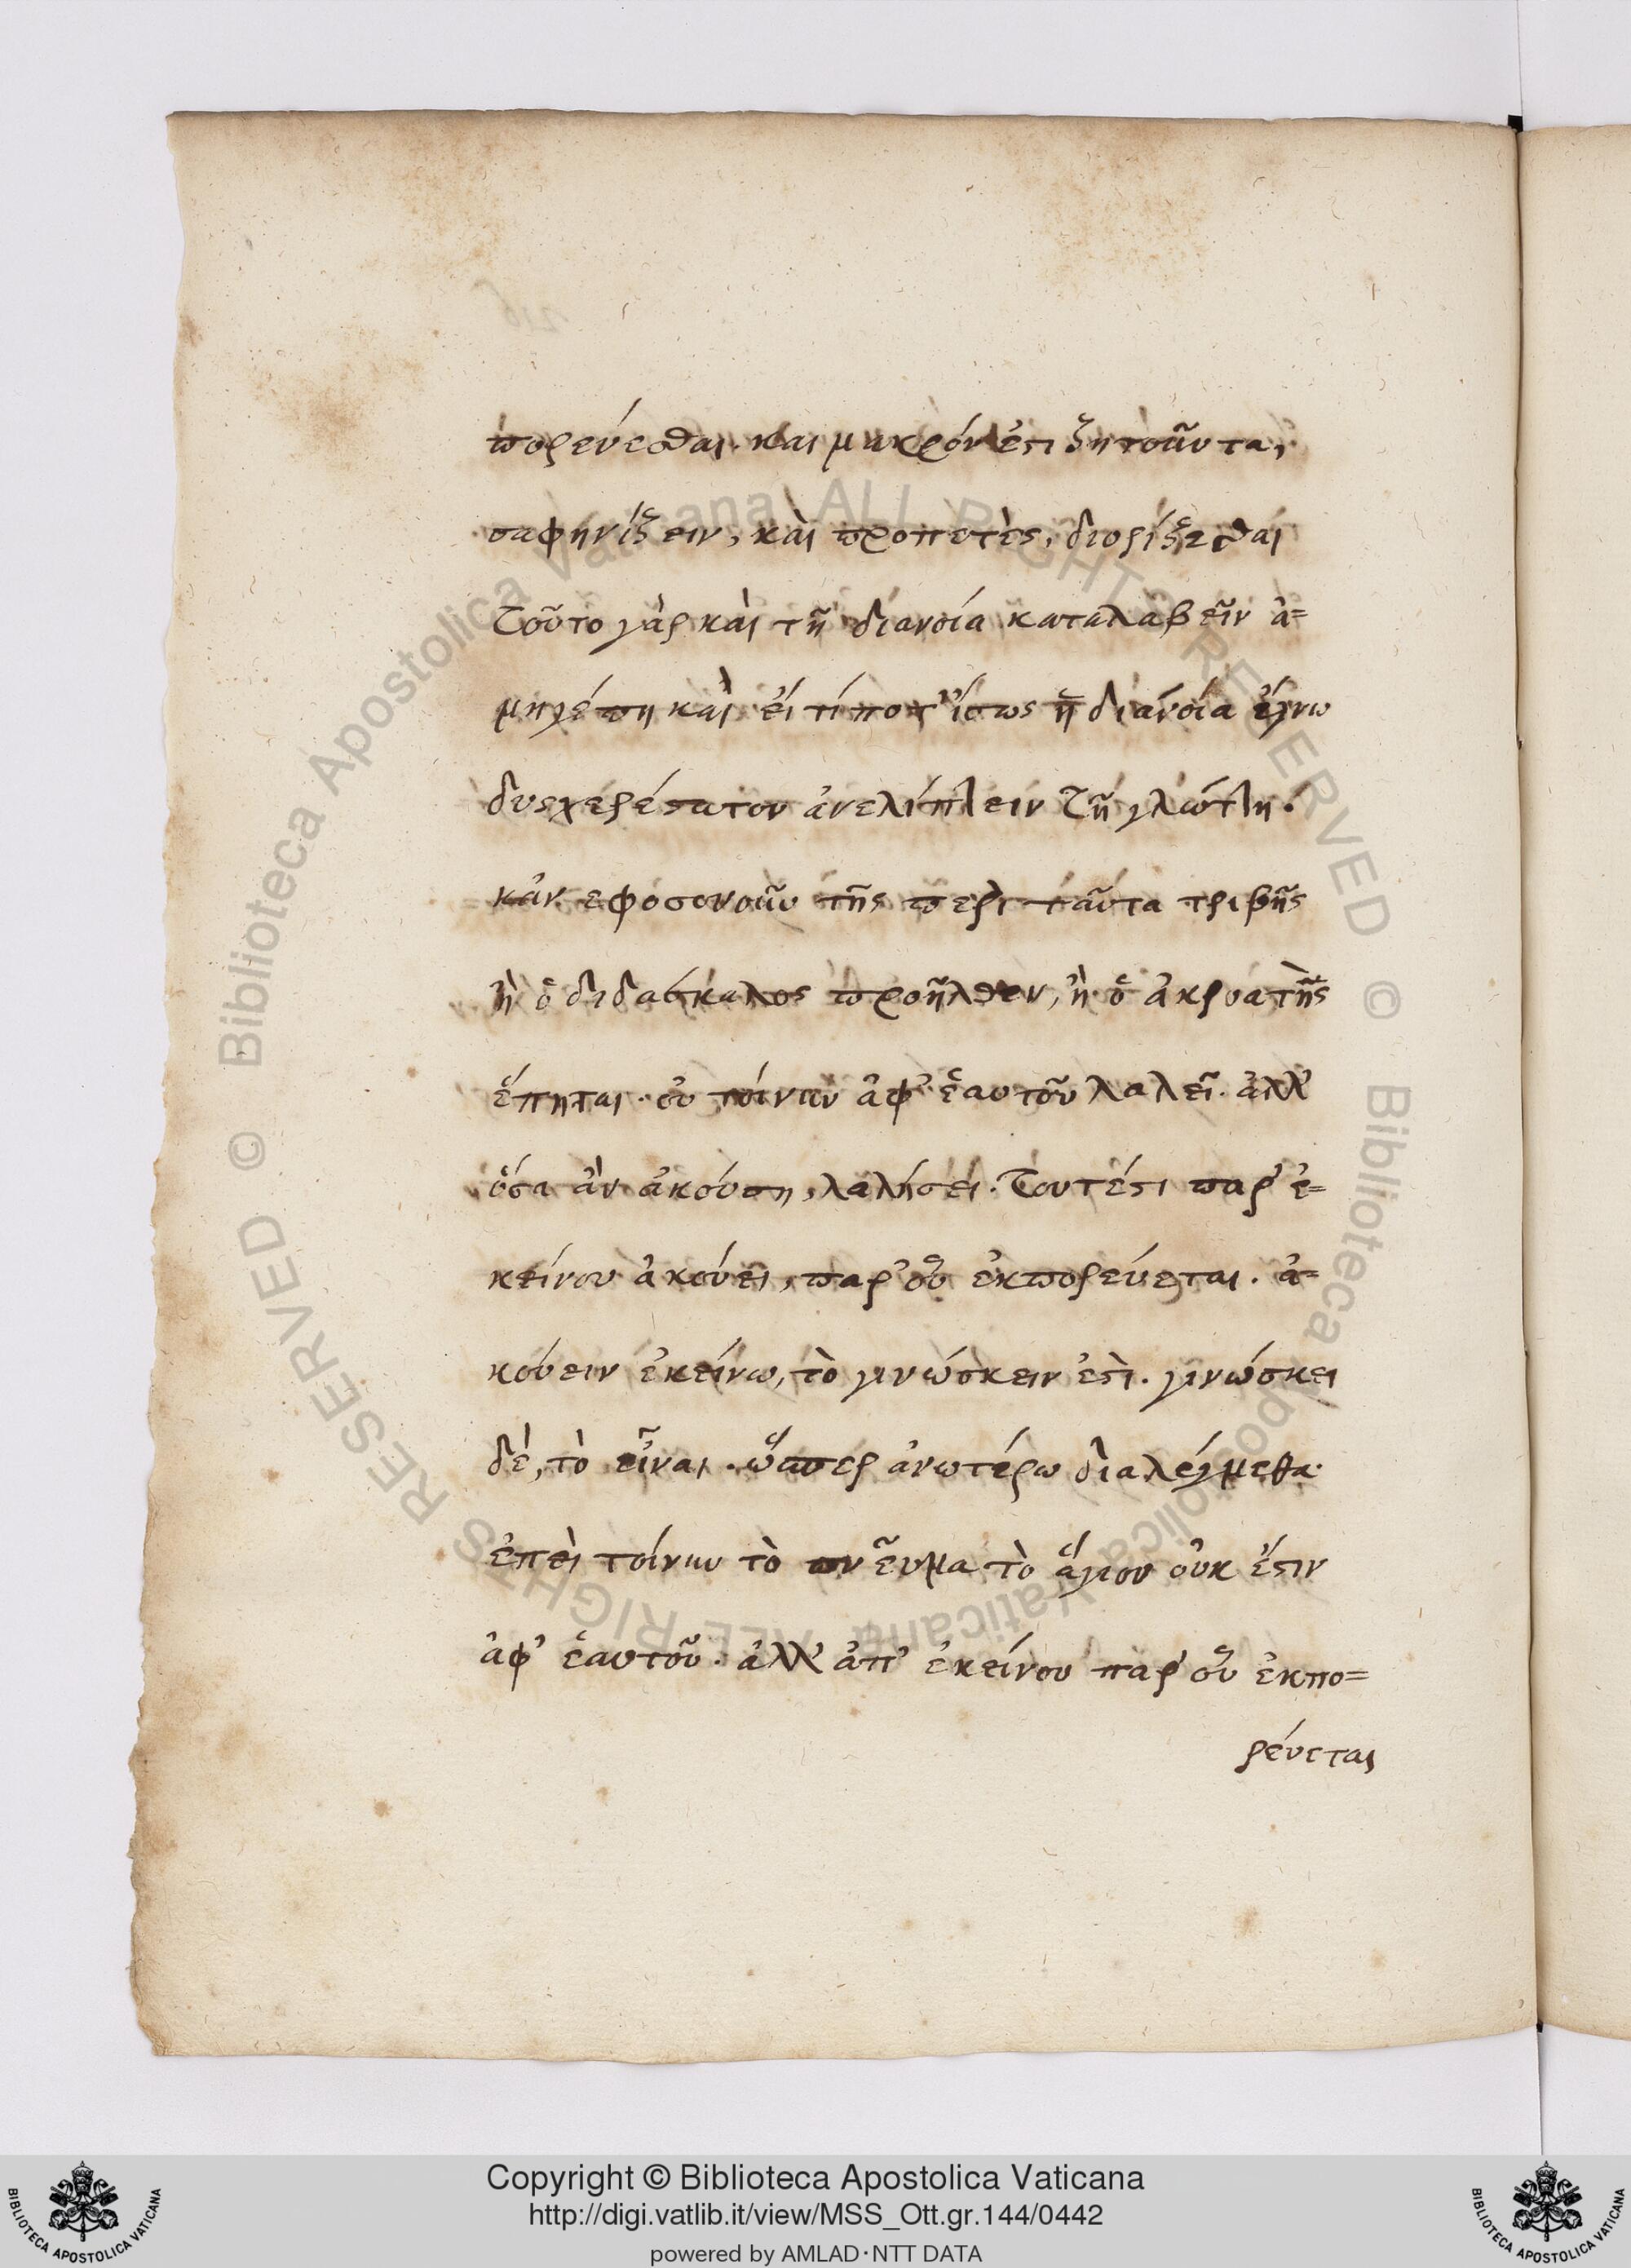 πορεύεσθαι. και μακρόν ἐπιζητοῦντα,
σαφηνίζειν, καὶ προπετὲς, διορίζεσθαι
τοῦτο γὰρ καὶ τῇ διανοία καταλαβεῖν ἀ=
μηγέπη καὶ εἰ τί ποτ' ἴσως ἡ διάνοία ἔγνω
δυσχερέστατον ἀνελίπτειν τῇ γλώττη.
κἀν εφοσονοῦν τῆς περι ταῦτα τριβῆς
ἢ ὁ διδασκαλος προῆλθεν, ἢ ὁ ἀκροατὴς
ἕπηται. οὐ τοίνυν ἀφ' ἑαυτοῦ λαλεῖ. ἀλλ'
ὅσα ἂν ἀκούση, λαλήσει. τουτέστι παρ' ἐ=
κείνου ἀκούει, παρ' οὗ ἐκπορεύεται. ἀ=
κούειν ἐκείνω, τὸ γινώσκειν ἐστὶ. γινώσκει
δὲ, τὸ εἶναι. ὥσπερ ἀνωτέρω διαλέγμεθα.
ἐπεὶ τοίνυν τὸ πνεῦμα τὸ ἅγιον οὐκ ἔστιν
ἀφ' ἑαυτοῦ. ἀλλ' ἀπ' ἐκείνου παρ' οὗ ἐκπο=
ρεύεται
© Biblioteca Apostolica Vaticana ALL RIGHTS RESERVED © Biblioteca Apostolica Vaticana ALL RIGHTS RESERVED
Copyright © Biblioteca Apostolica Vaticana
http://digi.vatlib.it/view/MSS_Ott.gr.144/0442
powered by AMLAD·NTT DATA
BIBLIOTECA APOSTOLICA VATICANA
BIBLIOTECA APOSTOLICA VATICANA